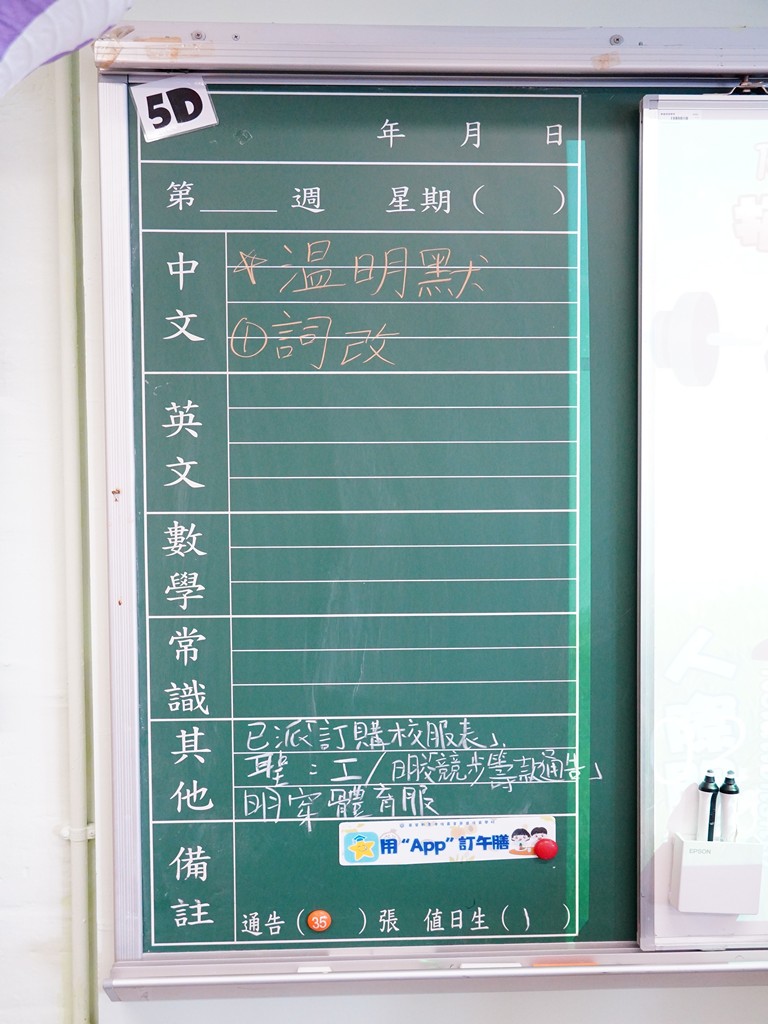 5D
年 月 日
第____週 星期( )
中文
*溫明默
①詞改
英文
數學
常識
其他
已派「訂購校服表」.
聖:工/ 競步籌款通告」
明穿體育服
備註
用“App”訂午膳
通告(35 )張 值日生( )
EPSON